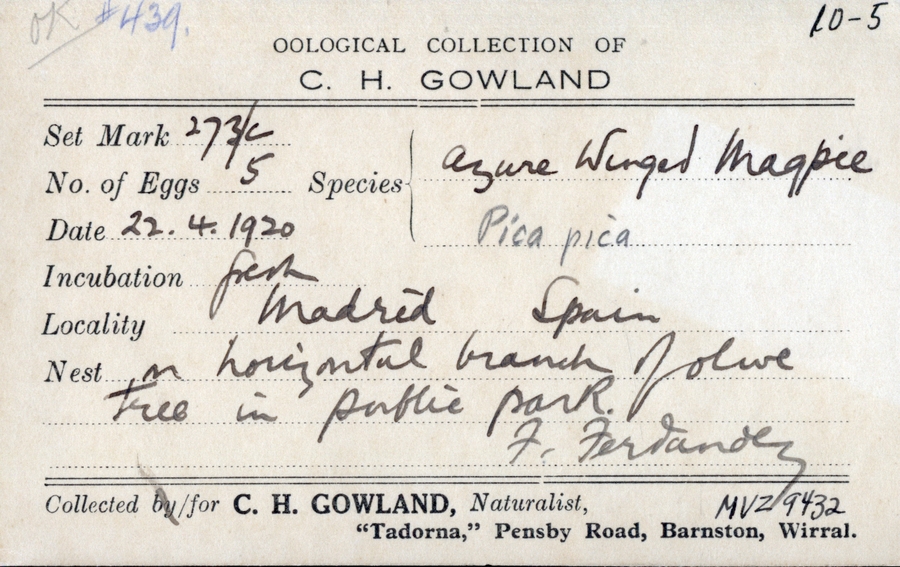 OK #439.
10-5
OOLOGICAL COLLECTION OF
C. H. GOWLAND
Set Mark 273/c
No. of Eggs 5 Species Azure Winged Magpie
Date 22.4.1920 Pica pica
Incubation fresh
Locality Madrid Spain
Nest on horizontal branch of olive
tree in public park.
F. Ferdandez
Collected by/for C. H. GOWLAND, Naturalist, MVZ 9432
"Tadorna," Pensby Road, Barnston, Wirral.